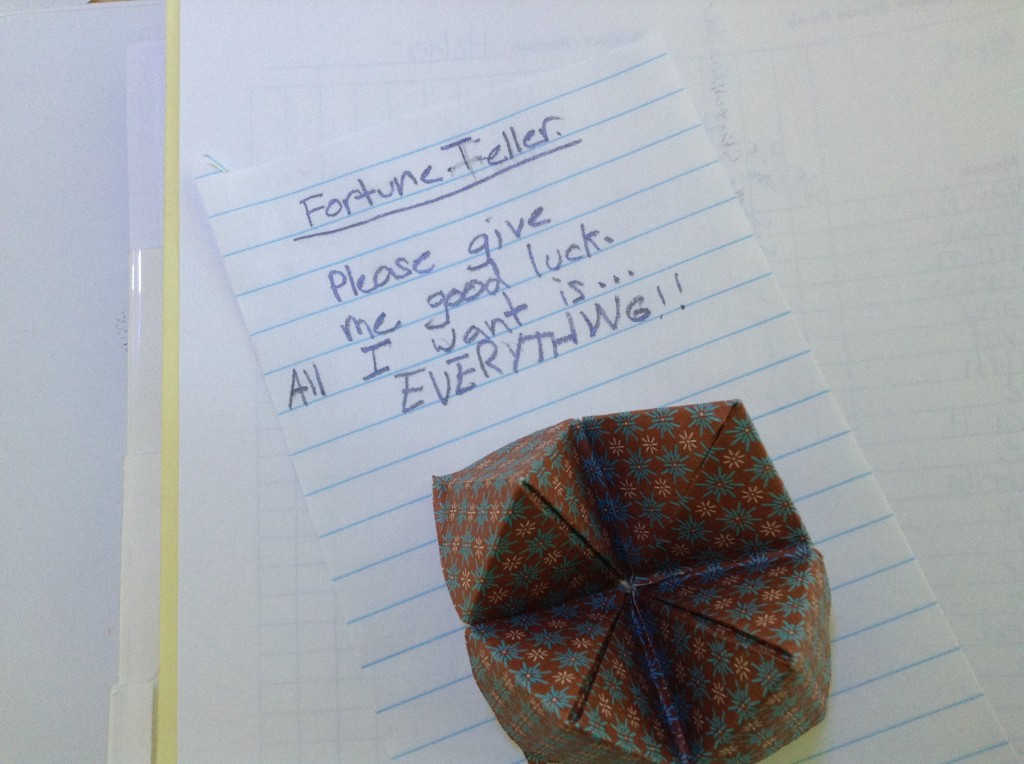 Fortune.Teller.
Please give
me good luck.
All I want is...
EVERYTHING!!